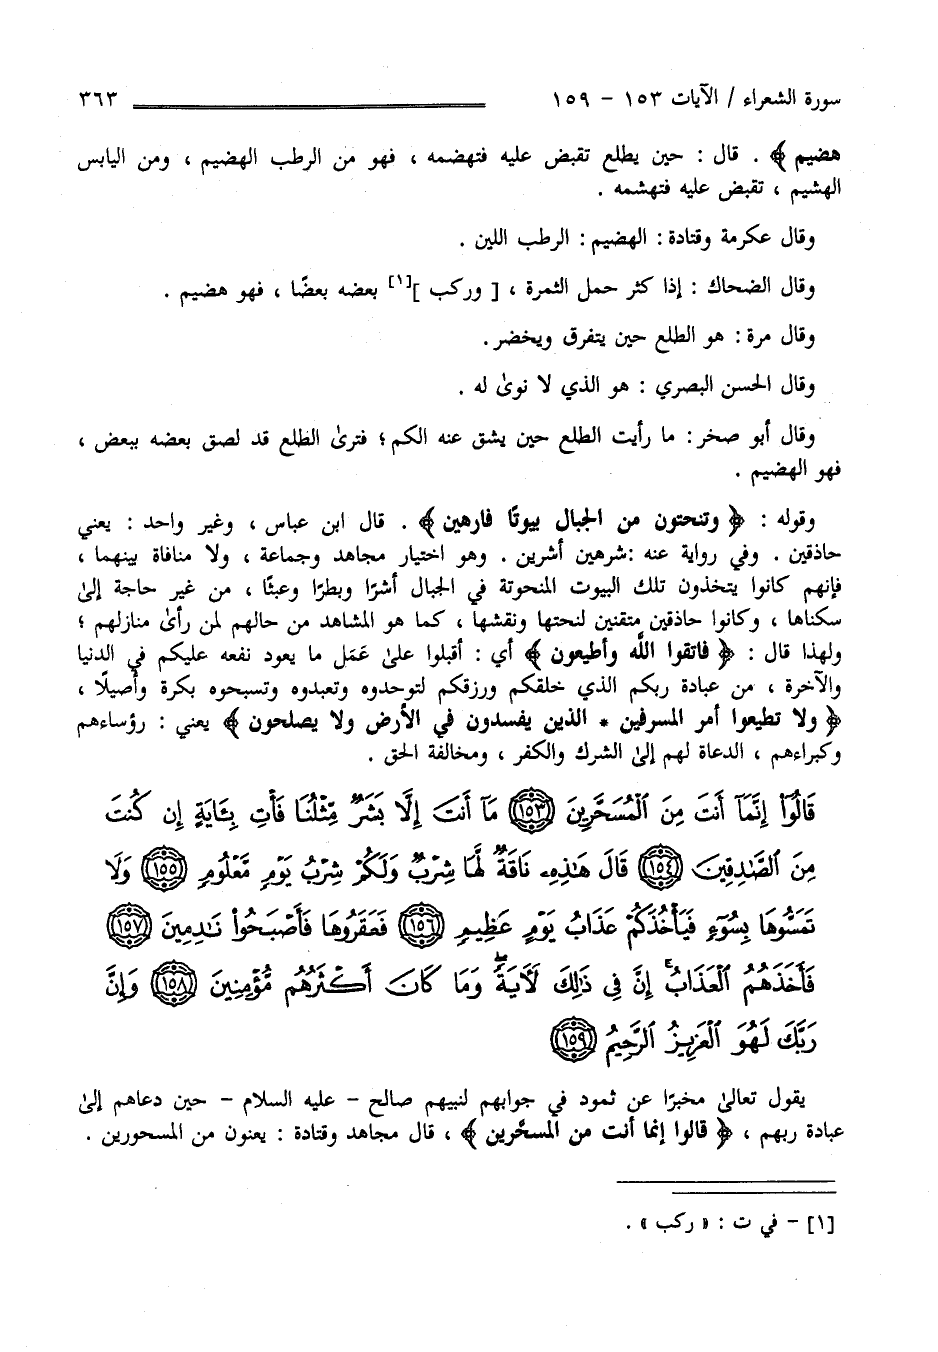 سورة الشعراء / الآيات ١٥٣ - ١٥٩ ٣٦٣
هضيم ﴾ . قال : حين يطلع تقبض عليه فتهضمه ، فهو من الرطب الهضيم ، ومن اليابس
الهشيم ، تقبض عليه فتهشمه .
وقال عكرمة وقتادة : الهضيم : الرطب اللين .
وقال الضحاك : إذا كثر حمل الثمرة ، [ وركب ][١] بعضه بعضًا ، فهو هضيم .
وقال مرة : هو الطلع حين يتفرق ويخضر .
وقال الحسن البصري : هو الذي لا نوىٰ له .
وقال أبو صخر : ما رأيت الطلع حين يشق عنه الكم ؛ فترىٰ الطلع قد لصق بعضه ببعض ،
فهو الهضيم .
وقوله : ﴿ وتنحتون من الجبال بيوتًا فارهين ﴾ . قال ابن عباس ، وغير واحد : يعني
حاذقين . وفي رواية عنه :شرهين أشرين . وهو اختيار مجاهد وجماعة ، ولا منافاة بينهما ،
فإنهم كانوا يتخذون تلك البيوت المنحوتة في الجبال أشرًا وبطرًا وعبثًا ، من غير حاجة إلىٰ
سكناها ، وكانوا حاذقين متقنين لنحتها ونقشها ، كما هو المشاهد من حالهم لمن رأىٰ منازلهم ؛
ولهذا قال : ﴿ فاتقوا اللَّه وأطيعون ﴾ أي : أقبلوا علىٰ عَمَل ما يعود نفعه عليكم في الدنيا
والآخرة ، من عبادة ربكم الذي خلقكم ورزقكم لتوحدوه وتعبدوه وتسبحوه بكرة وأصيلًا ،
﴿ ولا تطيعوا أمر المسرفين * الذين يفسدون في الأرض ولا يصلحون ﴾ يعني : رؤساءهم
وكبراءهم ، الدعاة لهم إلىٰ الشرك والكفر ، ومخالفة الحق .
قَالُوٓا۟ إِنَّمَآ أَنتَ مِنَ ٱلْمُسَحَّرِينَ ١٥٣ مَآ أَنتَ إِلَّا بَشَرٌ مِّثْلُنَا فَأْتِ بِـَٔايَةٍ إِن كُنتَ
مِنَ ٱلصَّـٰدِقِينَ ١٥٤ قَالَ هَـٰذِهِۦ نَاقَةٌ لَّهَا شِرْبٌ وَلَكُمْ شِرْبُ يَوْمٍ مَّعْلُومٍ ١٥٥ وَلَا
تَمَسُّوهَا بِسُوٓءٍ فَيَأْخُذَكُمْ عَذَابُ يَوْمٍ عَظِيمٍ ١٥٦ فَعَقَرُوهَا فَأَصْبَحُوا۟ نَـٰدِمِينَ ١٥٧
فَأَخَذَهُمُ ٱلْعَذَابُ ۗ إِنَّ فِى ذَٰلِكَ لَـَٔايَةً ۖ وَمَا كَانَ أَكْثَرُهُم مُّؤْمِنِينَ ١٥٨ وَإِنَّ
رَبَّكَ لَهُوَ ٱلْعَزِيزُ ٱلرَّحِيمُ ١٥٩
يقول تعالىٰ مخبرًا عن ثمود في جوابهم لنبيهم صالح - عليه السلام - حين دعاهم إلىٰ
عبادة ربهم ، ﴿ قالوا إنما أنت من المسحَّرين ﴾ ، قال مجاهد وقتادة : يعنون من المسحورين .
[١] - في ت : « ركب » .